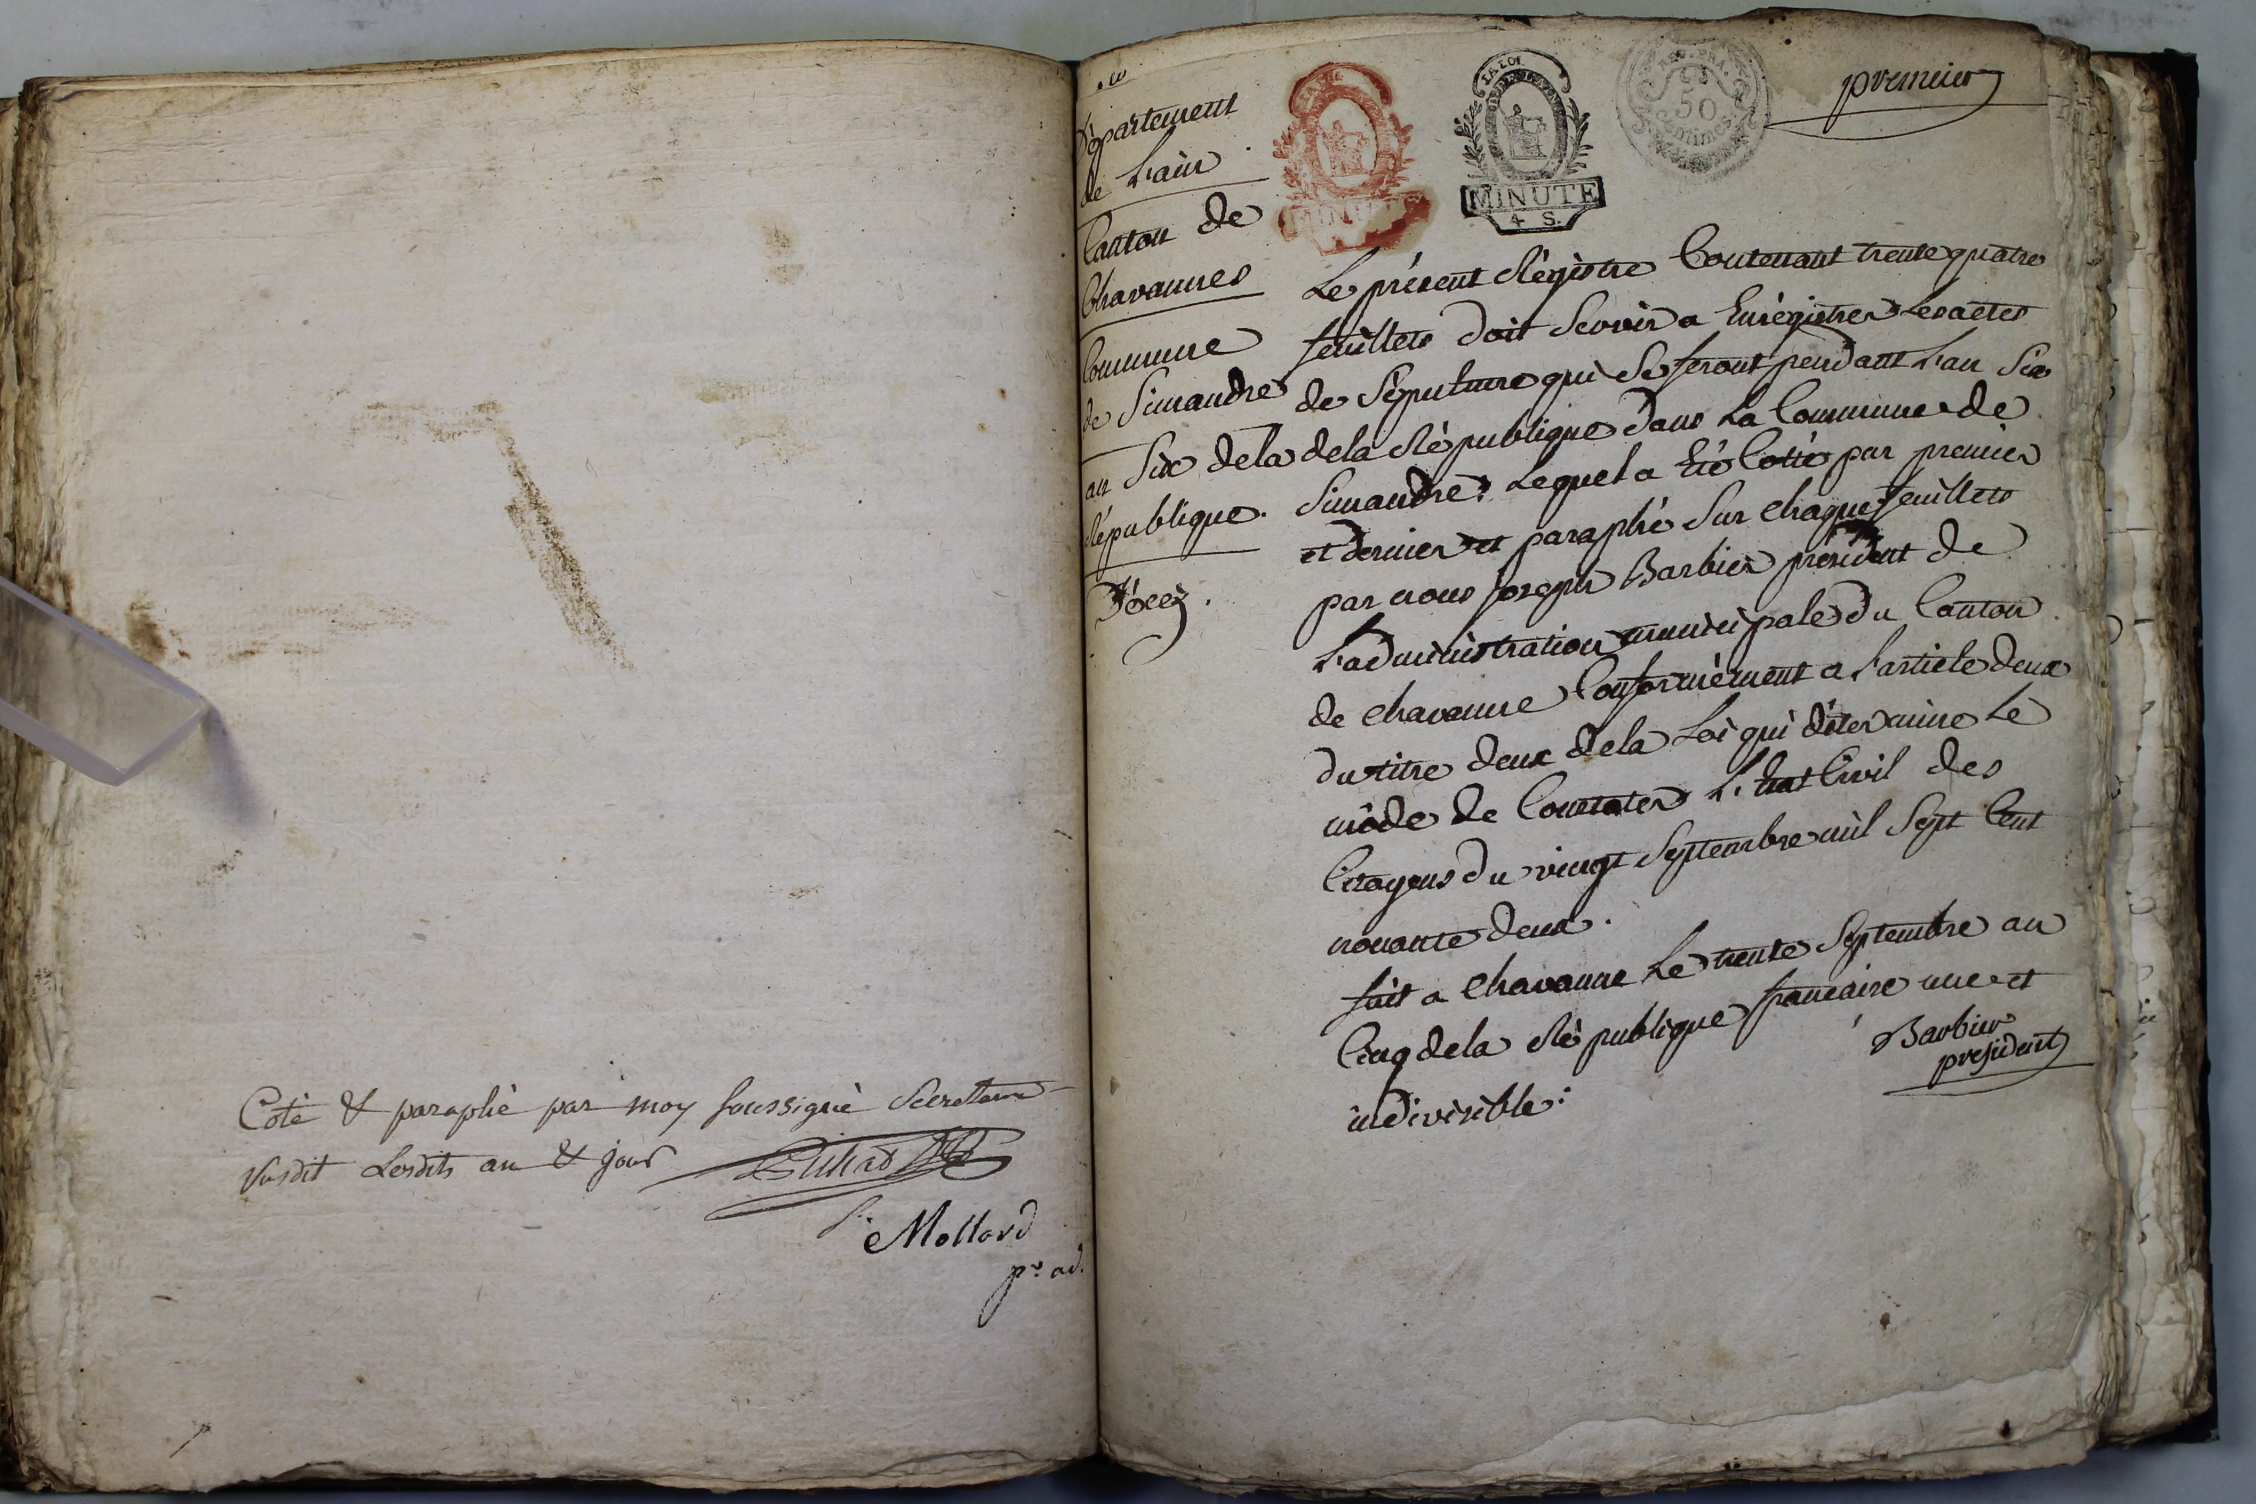 Coté & paraphé par moy soussigné Secretaire
susdit Lesdits an & jour
Mollard
pr. ad.
Département
de L'ain
Canton de
Chavannes
Commune
de Simandre
an Six de la
République.
Décéz.
LA LOI
MINUTE
4 S.
50
centimes
premier
Le présent Régistre Contenant trente quatre
feuillets doit Servir a Enrégistrer Les actes
de Sépulture qui Se feront pendant L'an Six
de la République dans La Commune de
Simandre; Lequel a Eté Cotté par premier
et dernier et paraphé Sur chaque feuillets
par nous joseph Barbier président de
L'administration municipale du Canton
de chavanne Conformément a L'article deux
du titre deux de la Loi qui détermine Le
mode de Constater L'Etat Civil des
Citoyens du vingt Septembre mil Sept Cent
nonante deux.
fait a Chavanne Le trente Septembre an
Cinq de la République francaise une et
indivisible:
Barbier
president